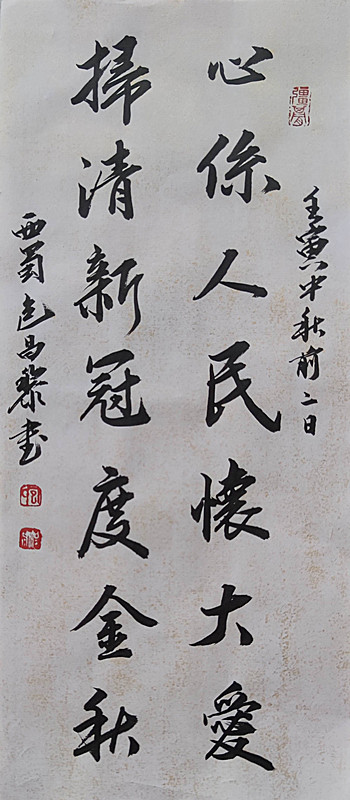 壬寅中秋前二日
心係人民懷大愛
掃清新冠度金秋
西蜀黎書